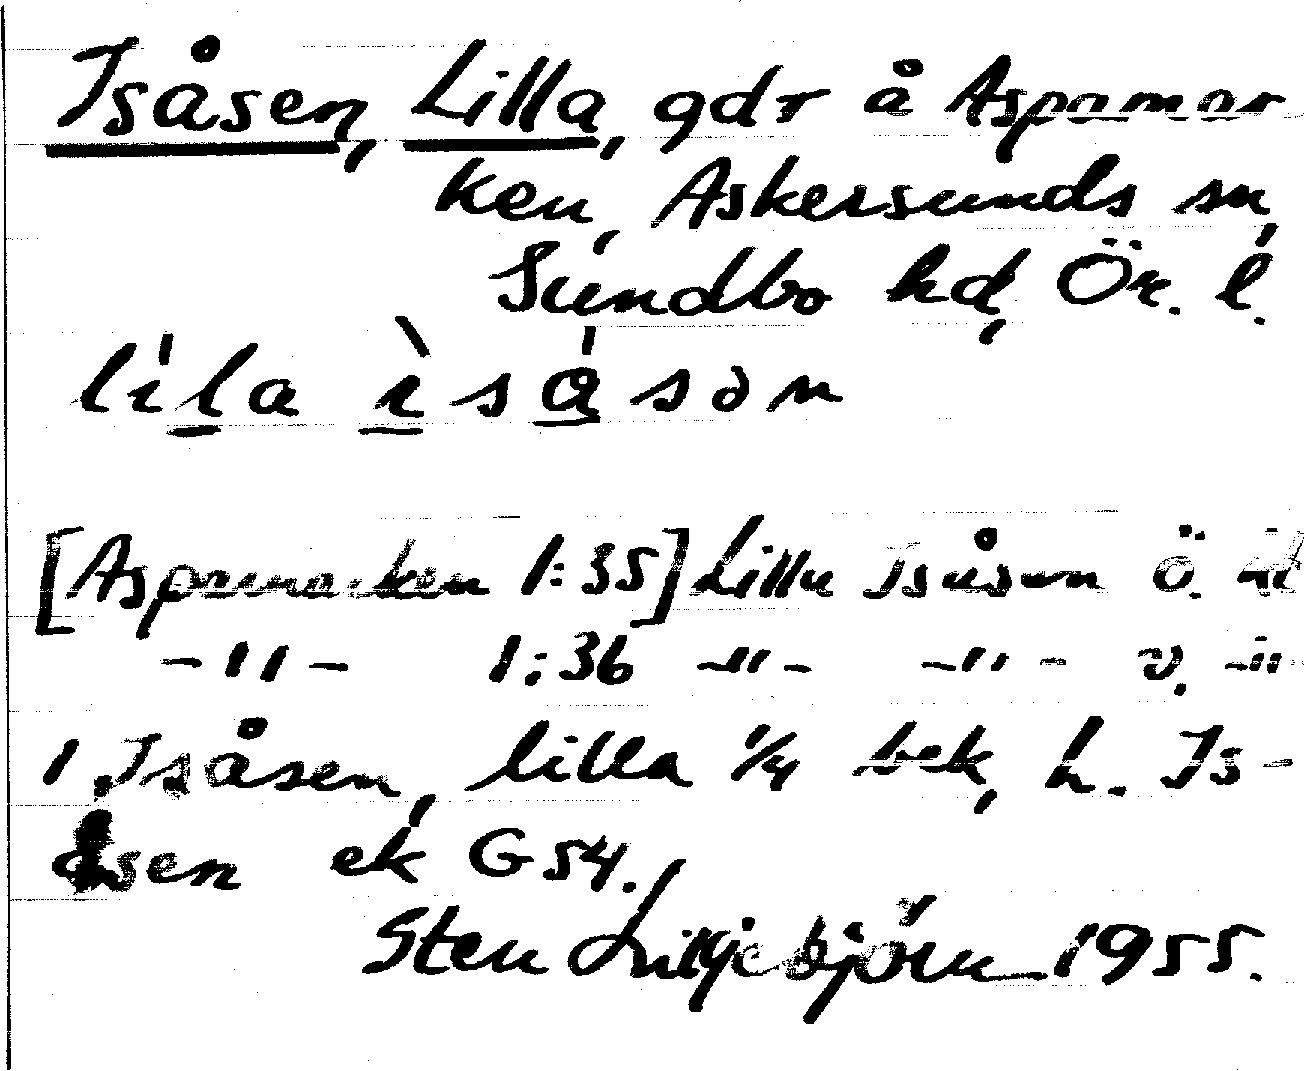 Isåsen, Lilla, gdr å Aspamar
ken, Askersunds sn,
Sundbo hd, Ör. l.
lila isåsən
[Aspamarken 1:35] Lilla Isåsen Ö.
-"- 1:36 -"- -"- V. -"-
1 Isåsen, lilla 1/4 bek, h. Is-
åsen ek G 54.
Sten Lilljebjörn 1955.